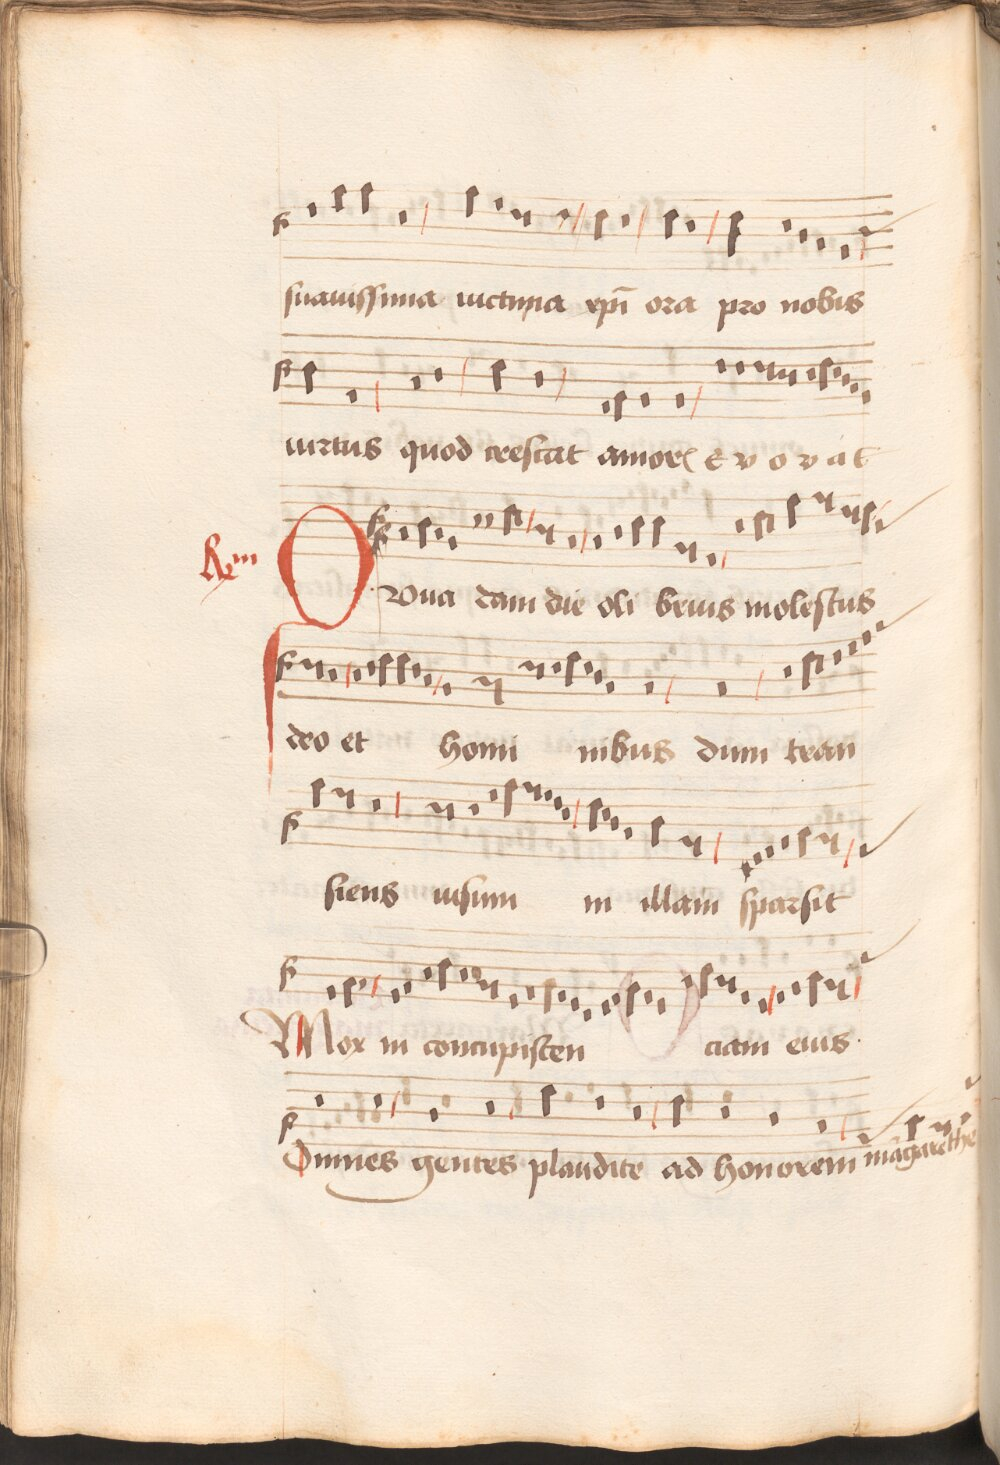 suauissima uictima xpī ora pro nobis
uirtus quod crescat amoris E v o v a E
Rm
Qva dam die oli brius molestus
deo et homi nibus dum tran
siens uisum in illam sparsit
Mox in concupiscen ciam eius
Omnes gentes plaudite ad honorem mārgarethe